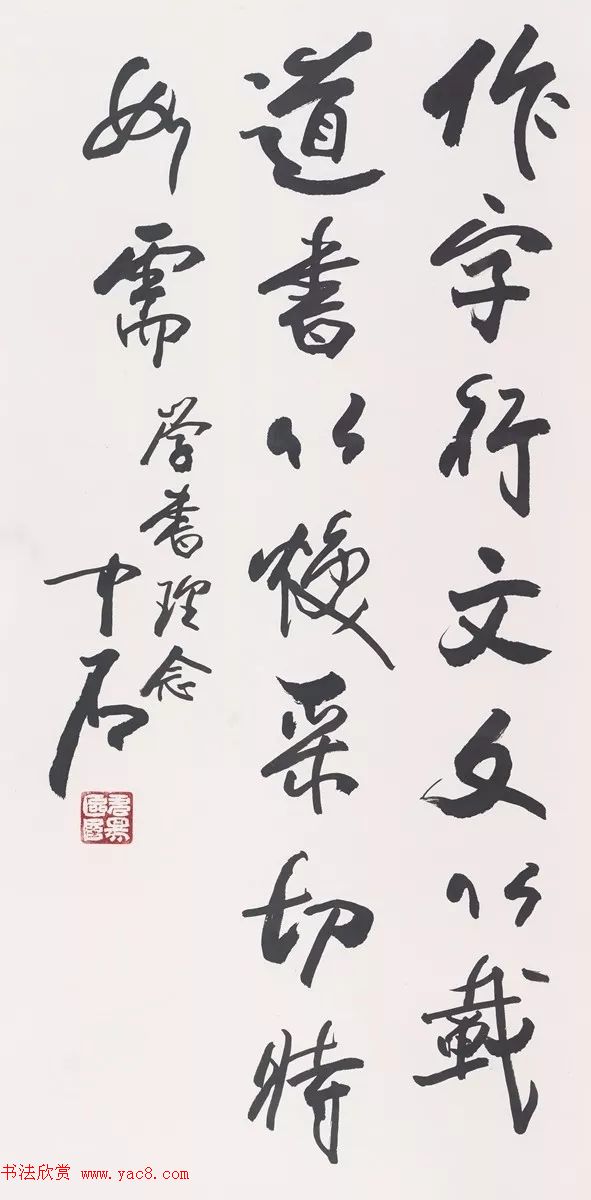 作字行文文以載
道書以煥采切時
如需
学書理念
中石
书法欣赏 www.yac8.com